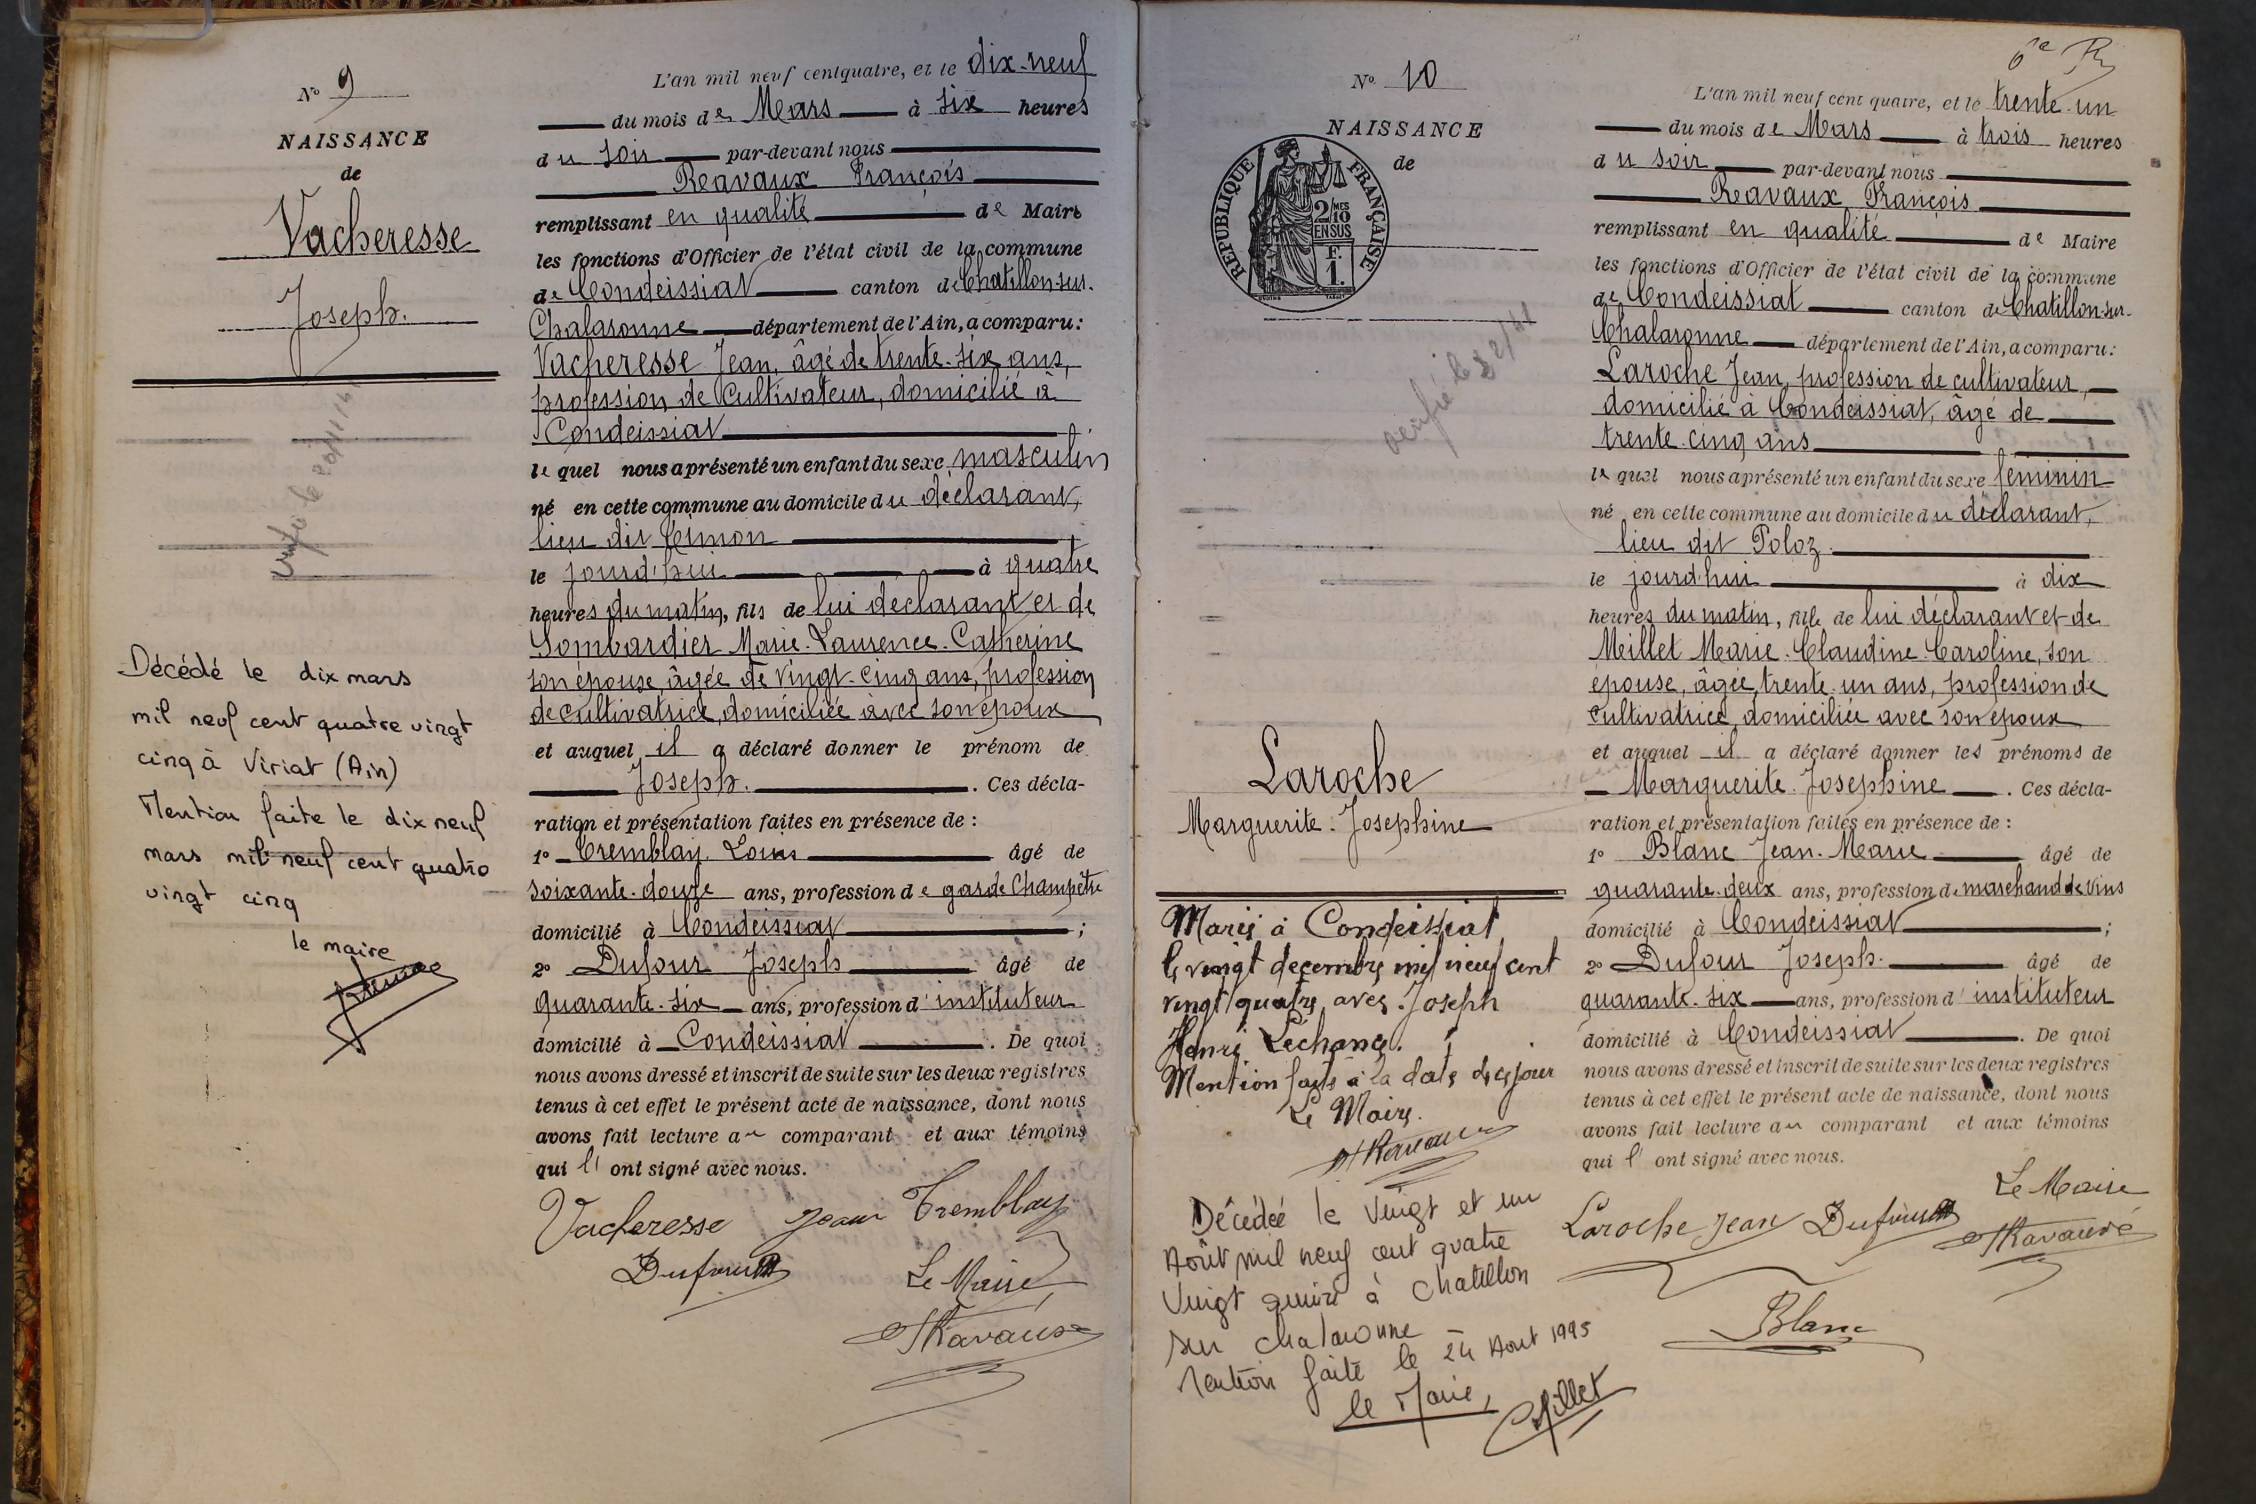 N° 9
NAISSANCE
de
Vacheresse
Joseph.
Décédé le dix mars
mil neuf cent quatre vingt
cinq à Viriat (Ain)
Mention faite le dix neuf
mars mil neuf cent quatre
vingt cinq
le maire
L'an mil neuf cent quatre, et le dix-neuf
du mois de Mars à six heures
du soir par-devant nous
Ravaux François
remplissant en qualité de Maire
les fonctions d'Officier de l'état civil de la commune
de Condeissiat canton de Chatillon-sur-
Chalaronne département de l'Ain, a comparu:
Vacheresse Jean, âgé de trente-six ans,
profession de Cultivateur, domicilié à
Condeissiat
lequel nous a présenté un enfant du sexe masculin
né en cette commune au domicile du déclarant,
lieu dit
le jourd'hui à quatre
heures du matin, fils de lui déclarant et de
Lombardier Marie-Laurence-Catherine
son épouse, âgée de vingt-cinq ans, profession
de cultivatrice, domiciliée avec son époux
et auquel il a déclaré donner le prénom de
Joseph. . Ces décla-
ration et présentation faites en présence de :
1° Tremblay Louis âgé de
soixante-douze ans, profession de garde Champêtre
domicilié à Condeissiat ;
2° Dufour Joseph âgé de
quarante-six ans, profession d'instituteur
domicilié à Condeissiat . De quoi
nous avons dressé et inscrit de suite sur les deux registres
tenus à cet effet le présent acte de naissance, dont nous
avons fait lecture au comparant et aux témoins
qui l' ont signé avec nous.
Vacheresse Jean Tremblay
Dufour Le Maire
Ravaux
N° 10
NAISSANCE
de
REPUBLIQUE FRANÇAISE
2/10 MES
EN SUS
F.
1.
vérifié le
Laroche
Marguerite-Josephine
Mariée à Condeissiat
le vingt decembre mil neuf cent
vingt quatre avec Joseph
Henri Léchance.
Mention faite à la date de ce jour
Le Maire.
Ravaux
Décédée le Vingt et un
Août mil neuf cent quatre
Vingt quinze à Chatillon
sur Chalaronne
Mention faite le 24 Aout 1995
le Maire,
6e R
L'an mil neuf cent quatre, et le trente-un
du mois de Mars à trois heures
du soir par-devant nous
Ravaux François
remplissant en qualité de Maire
les fonctions d'Officier de l'état civil de la commune
de Condeissiat canton de Chatillon-sur-
Chalaronne département de l'Ain, a comparu:
Laroche Jean, profession de cultivateur,
domicilié à Condeissiat, âgé de
trente-cinq ans
lequel nous a présenté un enfant du sexe feminin
né en cette commune au domicile du déclarant,
lieu dit Poloz
le jourd'hui à dix
heures du matin, fille de lui déclarant et de
Millet Marie-Claudine-Caroline, son
épouse, âgée trente-un ans, profession de
cultivatrice, domiciliée avec son époux
et auquel il a déclaré donner les prénoms de
Marguerite-Josephine . Ces décla-
ration et présentation faites en présence de :
1° Blanc Jean-Marie âgé de
quarante-deux ans, profession de marchand de vins
domicilié à Condeissiat ;
2° Dufour Joseph. âgé de
quarante-six ans, profession d'instituteur
domicilié à Condeissiat . De quoi
nous avons dressé et inscrit de suite sur les deux registres
tenus à cet effet le présent acte de naissance, dont nous
avons fait lecture au comparant et aux témoins
qui l' ont signé avec nous.
Le Maire
Laroche Jean Dufour Ravaux
Blanc